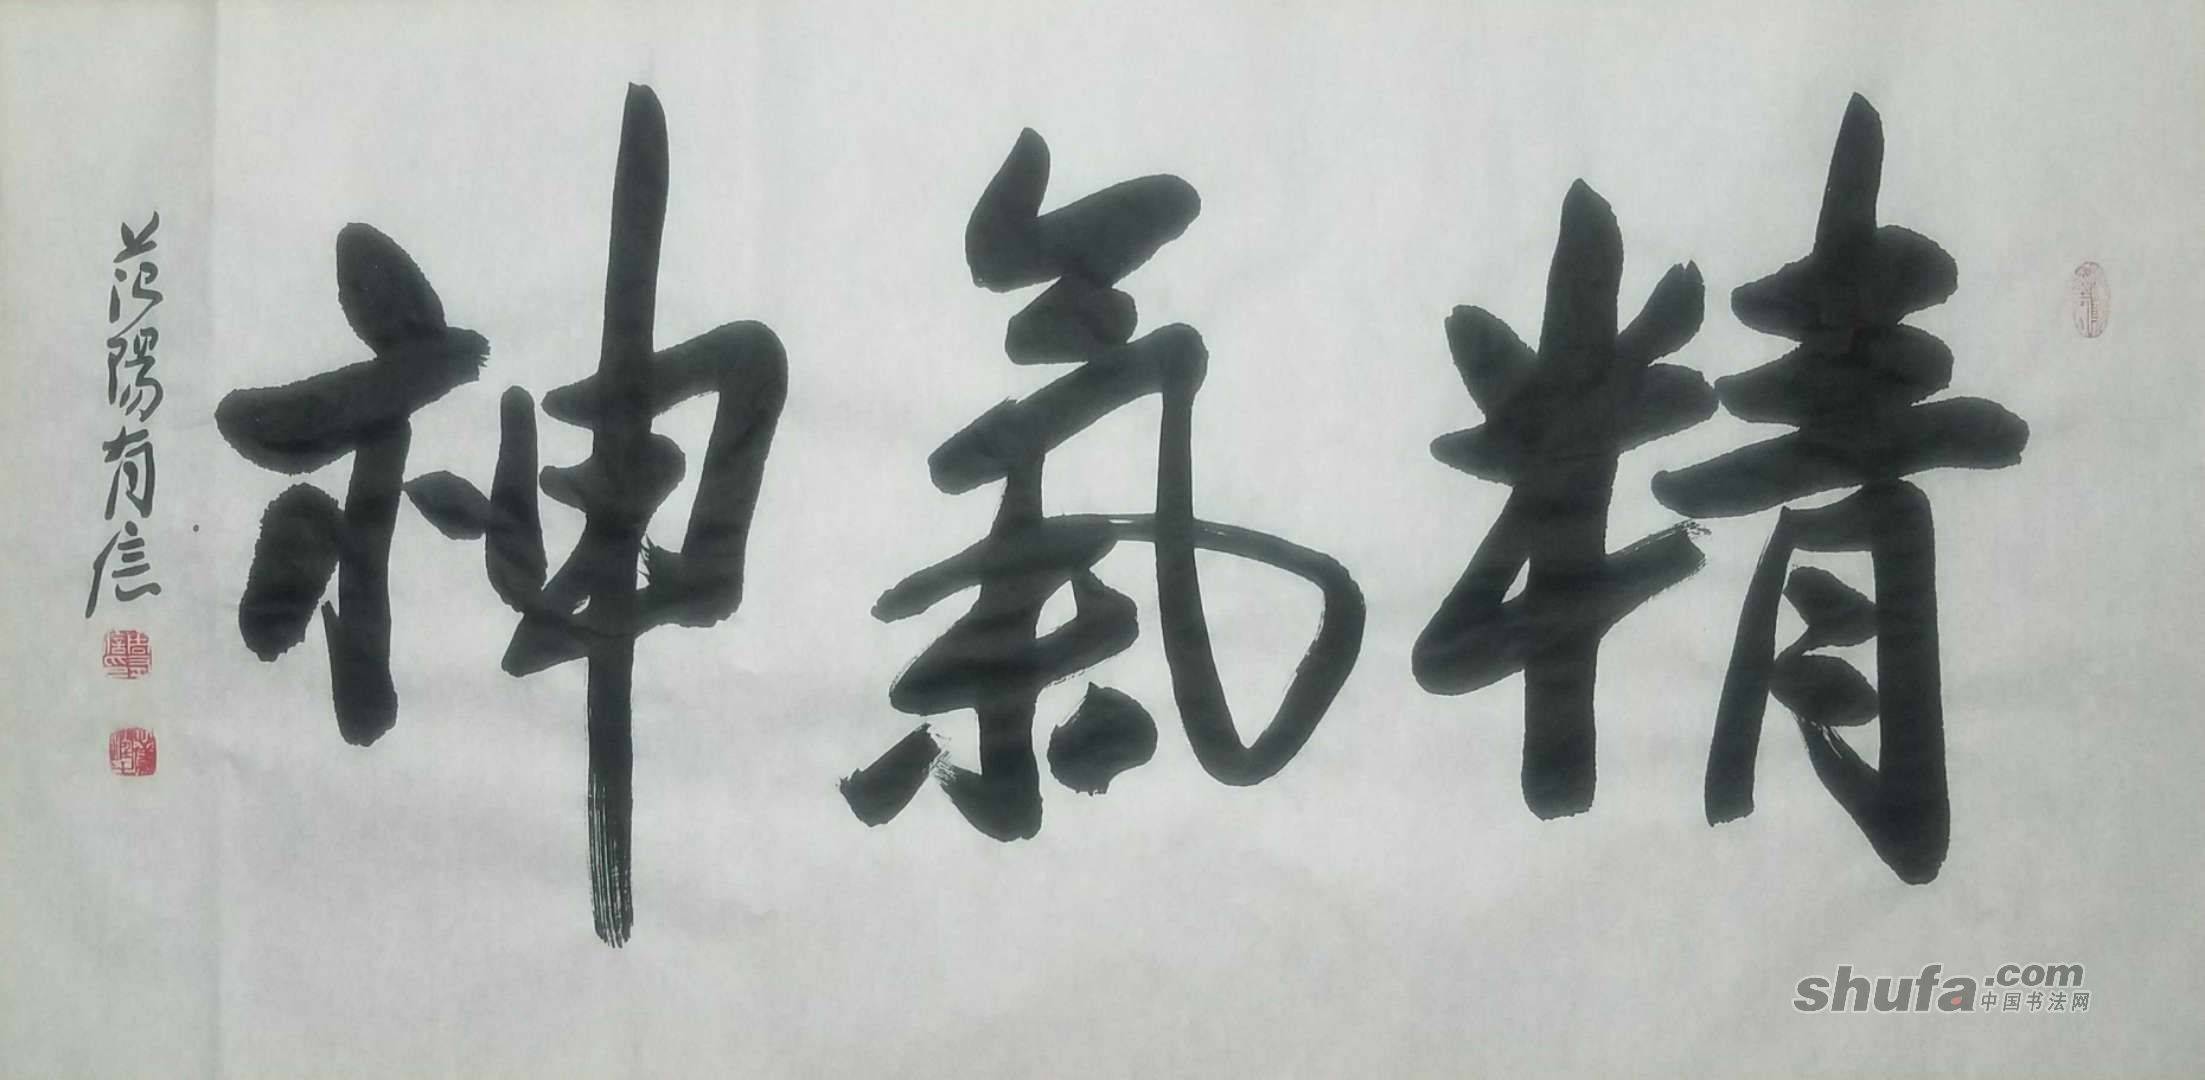 精氣神
范陽有信
shufa.com
中国书法网